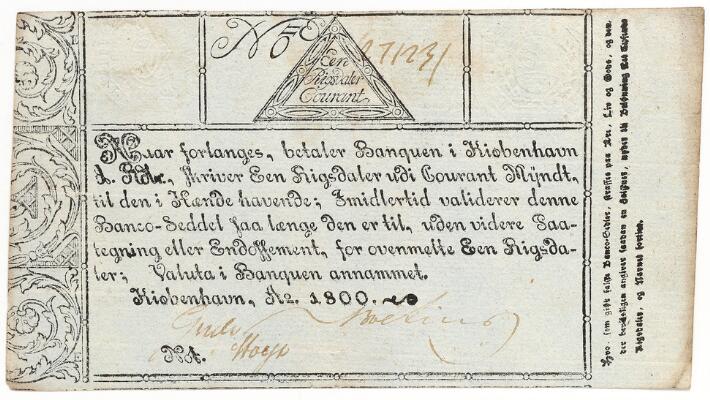 No
Een
Rigsdaler
Courant
Naar forlanges, betaler Banquen i Kiøbenhavn
1. Rdlr., skriver Een Rigsdaler udi Courant Myndt,
til den i Hænde havende; Imidlertid validerer denne
Banco-Seddel saa længe den er til, uden videre Paa-
tegning eller Endossement, for ovenmelte Een Rigsda-
ler; Valuta i Banquen annammet.
Kiøbenhavn, Ao. 1800.
Hvo, som giør falske Banco-Sedler, straffes paa Ære, Liv og Gods, og den,
der bevisligen angiver saadan en Falskner, nyder til Belønning
Rigsdaler, og Navnet forties.